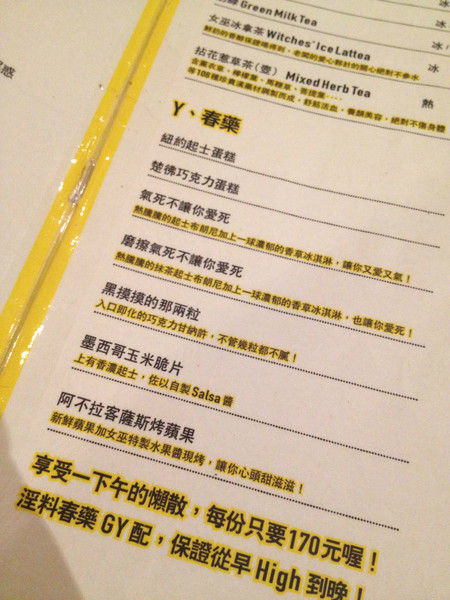 Green Milk Tea
冰
女巫冰拿茶 Witches' Ice Lattea
冰
拈花惹草茶(壺) Mixed Herb Tea
熱
Y、春藥
紐約起士蛋糕
楚佛巧克力蛋糕
氣死不讓你愛死
熱騰騰的起士布朗尼加上一球濃郁的香草冰淇淋,讓你又愛又氣!
磨擦氣死不讓你愛死
熱騰騰的抹茶起士布朗尼加上一球濃郁的香草冰淇淋,也讓你愛死!
黑摸摸的那兩粒
入口即化的巧克力甘納許,不管幾粒都不膩!
墨西哥玉米脆片
上有香濃起士,佐以自製 Salsa 醬
阿不拉客薩斯烤蘋果
新鮮蘋果加女巫特製水果醬現烤,讓你心頭甜滋滋!
享受一下午的懶散,每份只要170元喔!
淫料春藥 GY 配,保證從早 High 到晚!